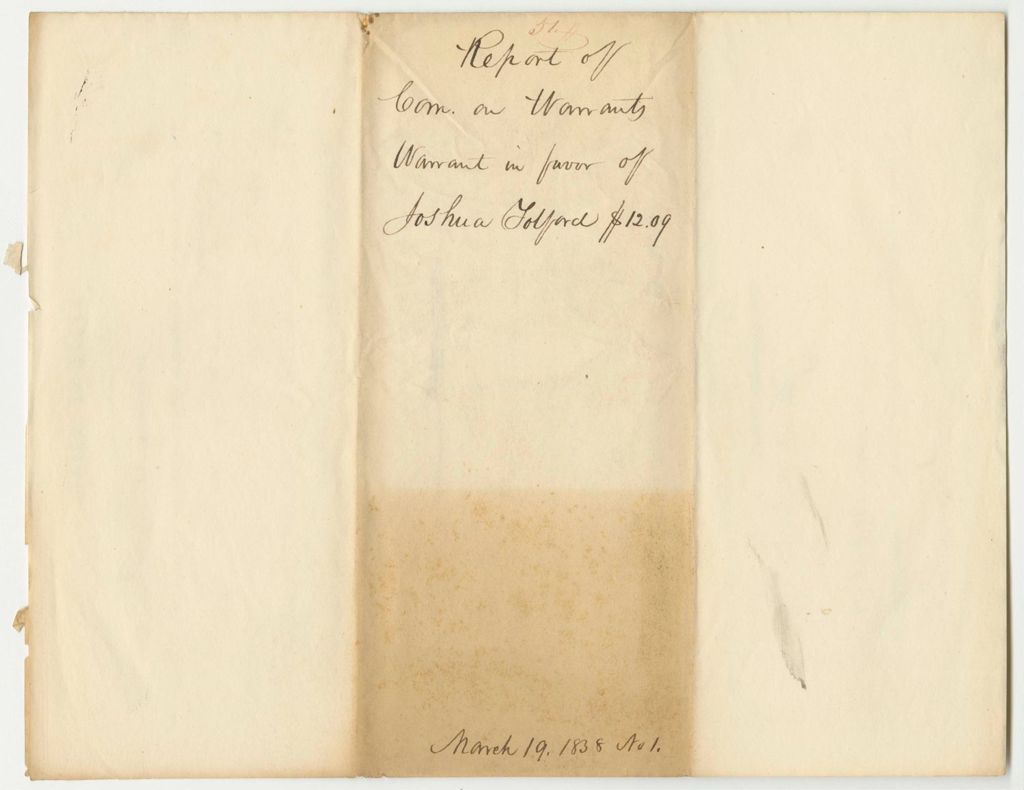 Report of
Com. on Warrants
Warrant in favor of
Joshua Tolford $12.09
March 19. 1838 No 1.